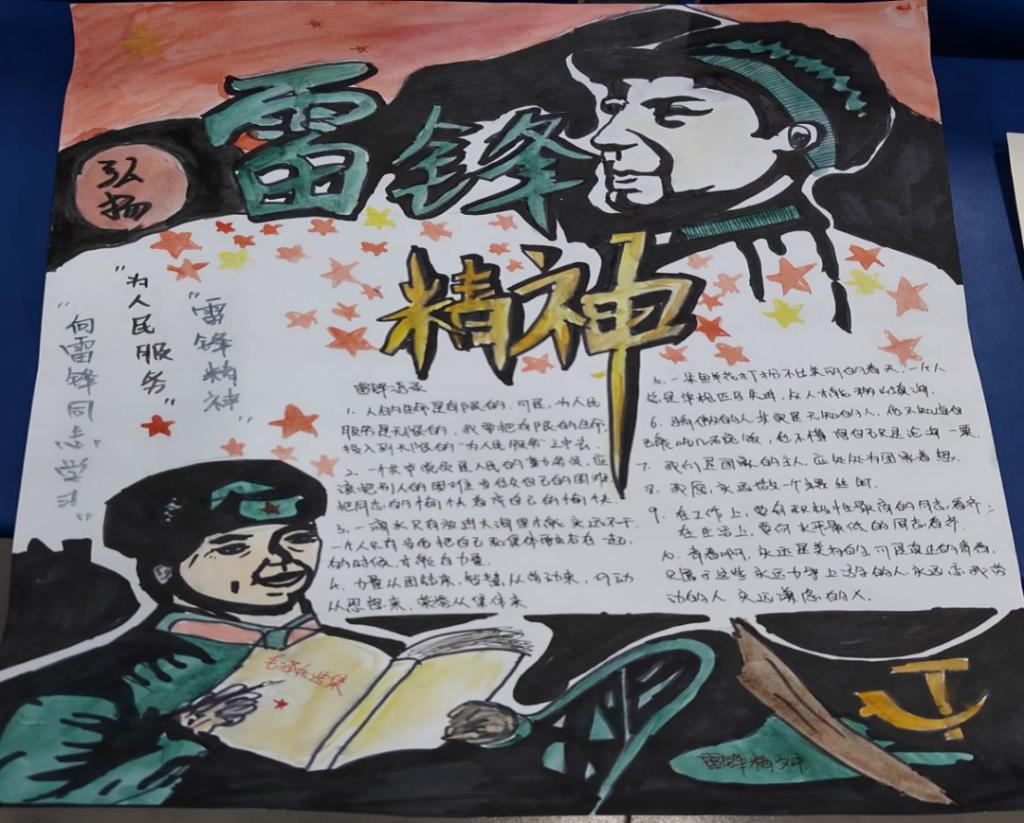 弘扬
雷锋
精神
"雷锋精神"
"为人民服务"
"向雷锋同志学习"
雷锋语录
1. 人的生命是有限的，可是，为人民
服务是无限的，我要把有限的生命，
投入到无限的"为人民服务"之中去。
2. 一个共产党员是人民的勤务员，应
该把别人的困难当成自己的困难，
把同志的愉快看成自己的愉快。
3. 一滴水只有放进大海里才能永远不干，
一个人只有当他把自己和集体融合在一起
的时候，才能有力量。
4. 力量从团结来，智慧从劳动来，行动
从思想来，荣誉从集体来
5. 一朵鲜花打扮不出美丽的春天，一个人
总是单枪匹马
6. 骄傲的人，其实是无知的人，他不知道自
己能吃几碗饭，他不懂得自己只是沧海一粟
7. 我们是国家的主人，应处处为国家着想
8. 我愿永远做一个螺丝钉
9. 在工作上，要向积极性最高的同志看齐；
在生活上，要向水平最低的同志看齐
10. 青春啊，永远是美好的，可是真正的青春，
只属于这些永远力争上游的人，永远忘我劳
动的人，永远谦虚的人.
毛泽东选集
雷锋精神